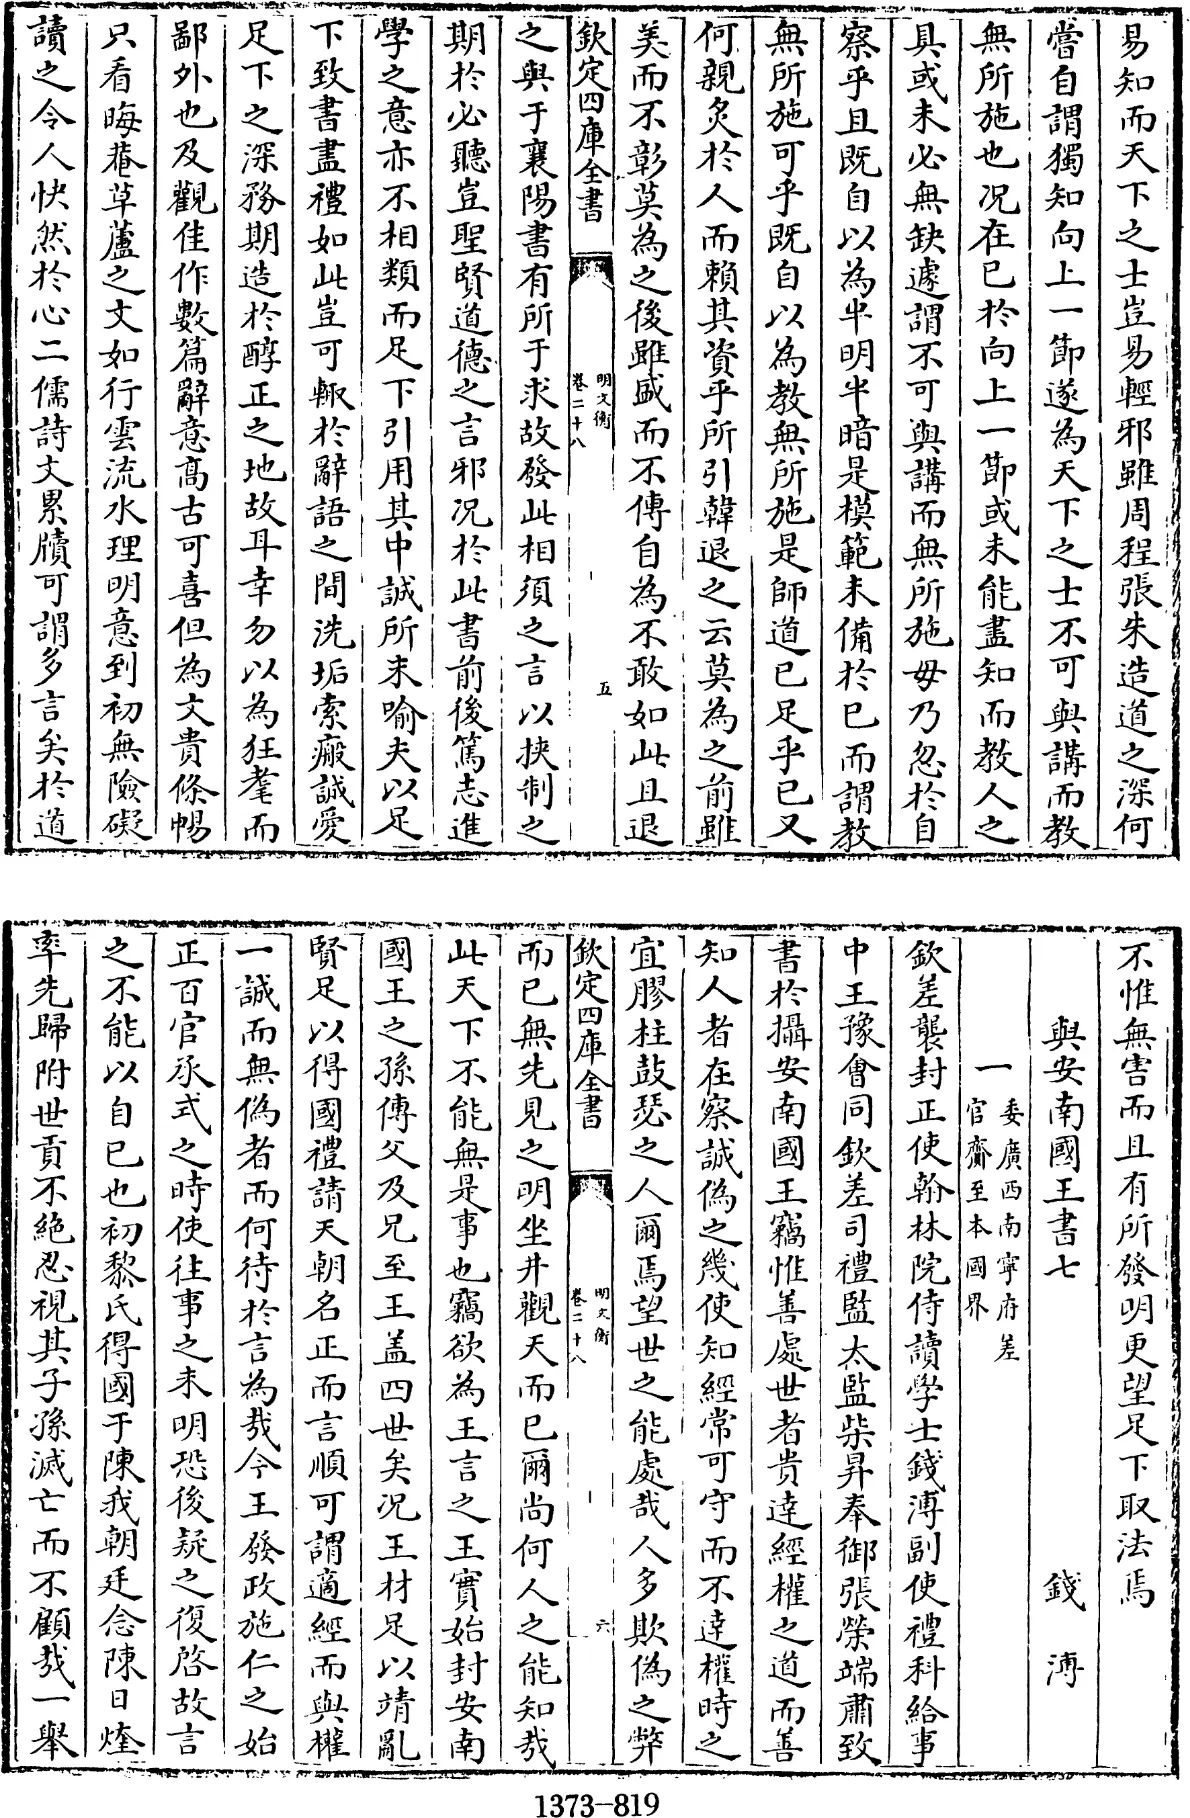 易知而天下之士豈易輕邪雖周程張朱造道之深何
嘗自謂獨知向上一節遂為天下之士不可與講而教
無所施也况在已於向上一節或未能盡知而教人之
具或未必無缺遽謂不可與講而無所施毋乃忽於自
察乎且既自以為半明半暗是模範未備於已而謂教
無所施可乎既自以為教無所施是師道已足乎已又
何親炙於人而賴其資乎所引韓退之云莫為之前雖
美而不彰莫為之後雖盛而不傳自為不敢如此且退
欽定四庫全書
明文衡
卷二十八
五
之與于襄陽書有所于求故發此相須之言以挾制之
期於必聽豈聖賢道德之言邪况於此書前後篤志進
學之意亦不相類而足下引用其中誠所未喻夫以足
下致書盡禮如此豈可輙於辭語之間洗垢索瘢誠愛
足下之深務期造於醇正之地故耳幸勿以為狂耄而
鄙外也及觀佳作數篇辭意高古可喜但為文貴條暢
只看晦菴草廬之文如行雲流水理明意到初無險礙
讀之令人快然於心二儒詩文累牘可謂多言矣於道
不惟無害而且有所發明更望足下取法焉
與安南國王書七 錢溥
一 委廣西南寧府差
官齎至本國界
欽差襲封正使翰林院侍讀學士錢溥副使禮科給事
中王豫會同欽差司禮監太監柴昇奉御張榮端肅致
書於攝安南國王竊惟善處世者貴達經權之道而善
知人者在察誠偽之幾使知經常可守而不達權時之
宜膠柱鼓瑟之人爾焉望世之能處哉人多欺偽之弊
欽定四庫全書
明文衡
卷二十八
六
而已無先見之明坐井觀天而已爾尚何人之能知哉
此天下不能無是事也竊欲為王言之王實始封安南
國王之孫傳父及兄至王盖四世矣况王材足以靖亂
賢足以得國禮請天朝名正而言順可謂適經而與權
一誠而無偽者而何待於言為哉今王發政施仁之始
正百官承式之時使往事之未明恐後疑之復啓故言
之不能以自已也初黎氏得國于陳我朝廷念陳日煃
率先歸附世貢不絶忍視其子孫滅亡而不顧哉一舉
1373-819